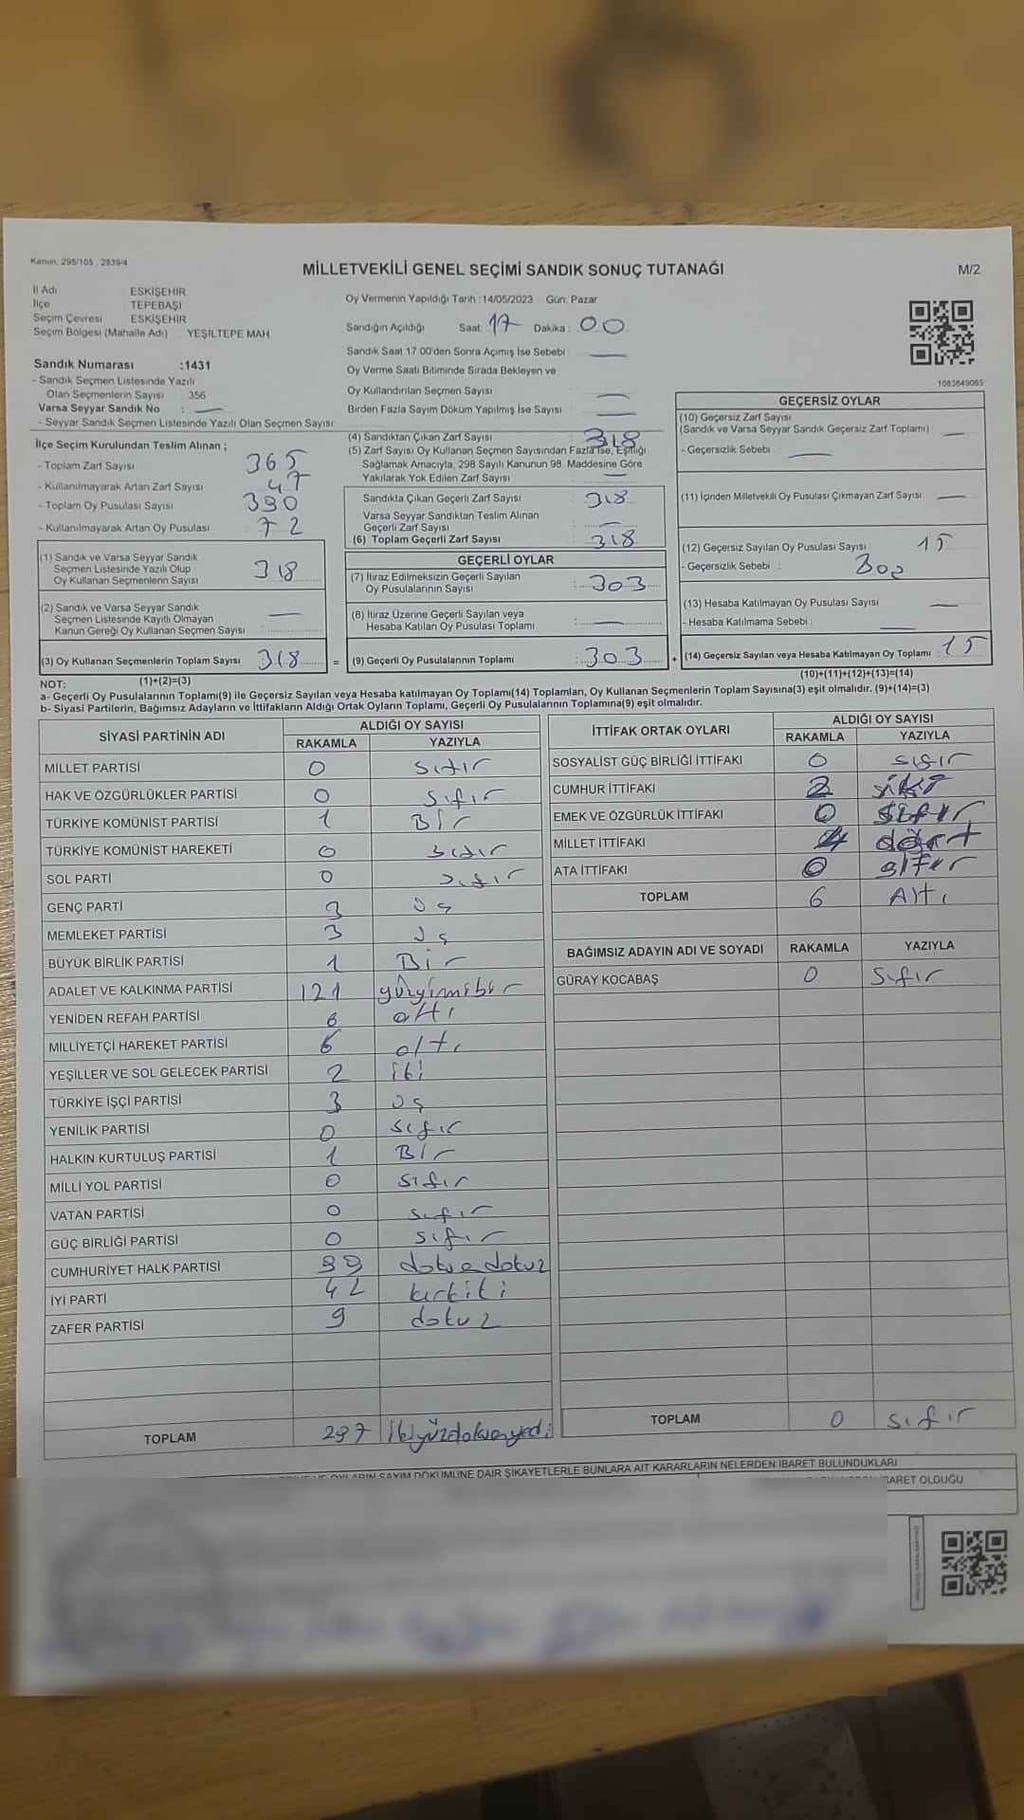 Kanun. 298/105 , 2839/4
MİLLETVEKİLİ GENEL SEÇİMİ SANDIK SONUÇ TUTANAĞI
M/2
İl Adı ESKİŞEHİR
İlçe TEPEBAŞI
Seçim Çevresi ESKİŞEHİR
Seçim Bölgesi (Mahalle Adı) YEŞİLTEPE MAH
Sandık Numarası :1431
- Sandık Seçmen Listesinde Yazılı
Olan Seçmenlerin Sayısı : 356
Varsa Seyyar Sandık No : —
- Seyyar Sandık Seçmen Listesinde Yazılı Olan Seçmen Sayısı
Oy Vermenin Yapıldığı Tarih :14/05/2023 Gün: Pazar
Sandığın Açıldığı Saat: 17 Dakika : 00
Sandık Saat 17 00'den Sonra Açımış İse Sebebi : —
Oy Verme Saati Bitiminde Sırada Bekleyen ve
Oy Kullandırılan Seçmen Sayısı : —
Birden Fazla Sayım Döküm Yapılmış İse Sayısı : —
1083649065
İlçe Seçim Kurulundan Teslim Alınan ;
- Toplam Zarf Sayısı 365
- Kullanılmayarak Artan Zarf Sayısı 47
- Toplam Oy Pusulası Sayısı 390
- Kullanılmayarak Artan Oy Pusulası 72
(1) Sandık ve Varsa Seyyar Sandık
Seçmen Listesinde Yazılı Olup
Oy Kullanan Seçmenlerin Sayısı 318
(2) Sandık ve Varsa Seyyar Sandık
Seçmen Listesinde Kayıtlı Olmayan
Kanun Gereği Oy Kullanan Seçmen Sayısı —
(3) Oy Kullanan Seçmenlerin Toplam Sayısı 318 =
(1)+(2)=(3)
(4) Sandıktan Çıkan Zarf Sayısı 318
(5) Zarf Sayısı Oy Kullanan Seçmen Sayısından Fazla İse, Eşitliği
Sağlamak Amacıyla, 298 Sayılı Kanunun 98. Maddesine Göre
Yakılarak Yok Edilen Zarf Sayısı : —
Sandıkta Çıkan Geçerli Zarf Sayısı 318
Varsa Seyyar Sandıktan Teslim Alınan
Geçerli Zarf Sayısı —
(6) Toplam Geçerli Zarf Sayısı : 318
GEÇERLİ OYLAR
(7) İtiraz Edilmeksizin Geçerli Sayılan
Oy Pusulalarının Sayısı : 303
(8) İtiraz Üzerine Geçerli Sayılan veya
Hesaba Katılan Oy Pusulası Toplamı : —
(9) Geçerli Oy Pusulalarının Toplamı : 303 +
GEÇERSİZ OYLAR
(10) Geçersiz Zarf Sayısı
(Sandık ve Varsa Seyyar Sandık Geçersiz Zarf Toplamı) —
- Geçersizlik Sebebi : —
(11) İçinden Milletvekili Oy Pusulası Çıkmayan Zarf Sayısı —
(12) Geçersiz Sayılan Oy Pusulası Sayısı 15
- Geçersizlik Sebebi :
(13) Hesaba Katılmayan Oy Pusulası Sayısı —
- Hesaba Katılmama Sebebi : —
(14) Geçersiz Sayılan veya Hesaba Katılmayan Oy Toplamı : 15
(10)+(11)+(12)+(13)=(14)
NOT:
a- Geçerli Oy Pusulalarının Toplamı(9) ile Geçersiz Sayılan veya Hesaba katılmayan Oy Toplamı(14) Toplamları, Oy Kullanan Seçmenlerin Toplam Sayısına(3) eşit olmalıdır. (9)+(14)=(3)
b- Siyasi Partilerin, Bağımsız Adayların ve İttifakların Aldığı Ortak Oyların Toplamı, Geçerli Oy Pusulalarının Toplamına(9) eşit olmalıdır.
SİYASİ PARTİNİN ADI ALDIĞI OY SAYISI
RAKAMLA YAZIYLA
MİLLET PARTİSİ 0 sıfır
HAK VE ÖZGÜRLÜKLER PARTİSİ 0 sıfır
TÜRKİYE KOMÜNİST PARTİSİ 1 Bir
TÜRKİYE KOMÜNİST HAREKETİ 0 sıfır
SOL PARTİ 0 sıfır
GENÇ PARTİ 3 üç
MEMLEKET PARTİSİ 3 üç
BÜYÜK BİRLİK PARTİSİ 1 Bir
ADALET VE KALKINMA PARTİSİ 121 yüzyirmibir
YENİDEN REFAH PARTİSİ 6 altı
MİLLİYETÇİ HAREKET PARTİSİ 6 altı
YEŞİLLER VE SOL GELECEK PARTİSİ 2 iki
TÜRKİYE İŞÇİ PARTİSİ 3 üç
YENİLİK PARTİSİ 0 sıfır
HALKIN KURTULUŞ PARTİSİ 1 Bir
MİLLİ YOL PARTİSİ 0 sıfır
VATAN PARTİSİ 0 sıfır
GÜÇ BİRLİĞİ PARTİSİ 0 sıfır
CUMHURİYET HALK PARTİSİ 99 doksandokuz
İYİ PARTİ 42 kırkiki
ZAFER PARTİSİ 9 dokuz
TOPLAM 297 ikiyüzdoksanyedi
İTTİFAK ORTAK OYLARI ALDIĞI OY SAYISI
RAKAMLA YAZIYLA
SOSYALİST GÜÇ BİRLİĞİ İTTİFAKI 0 sıfır
CUMHUR İTTİFAKI 2 iki
EMEK VE ÖZGÜRLÜK İTTİFAKI 0 sıfır
MİLLET İTTİFAKI 4 dört
ATA İTTİFAKI 0 sıfır
TOPLAM 6 Altı
BAĞIMSIZ ADAYIN ADI VE SOYADI RAKAMLA YAZIYLA
GÜRAY KOCABAŞ 0 sıfır
TOPLAM 0 sıfır
OYLARIN SAYIM DÖKÜMÜNE DAİR ŞİKAYETLERLE BUNLARA AİT KARARLARIN NELERDEN İBARET BULUNDUKLARI
İBARET OLDUĞU